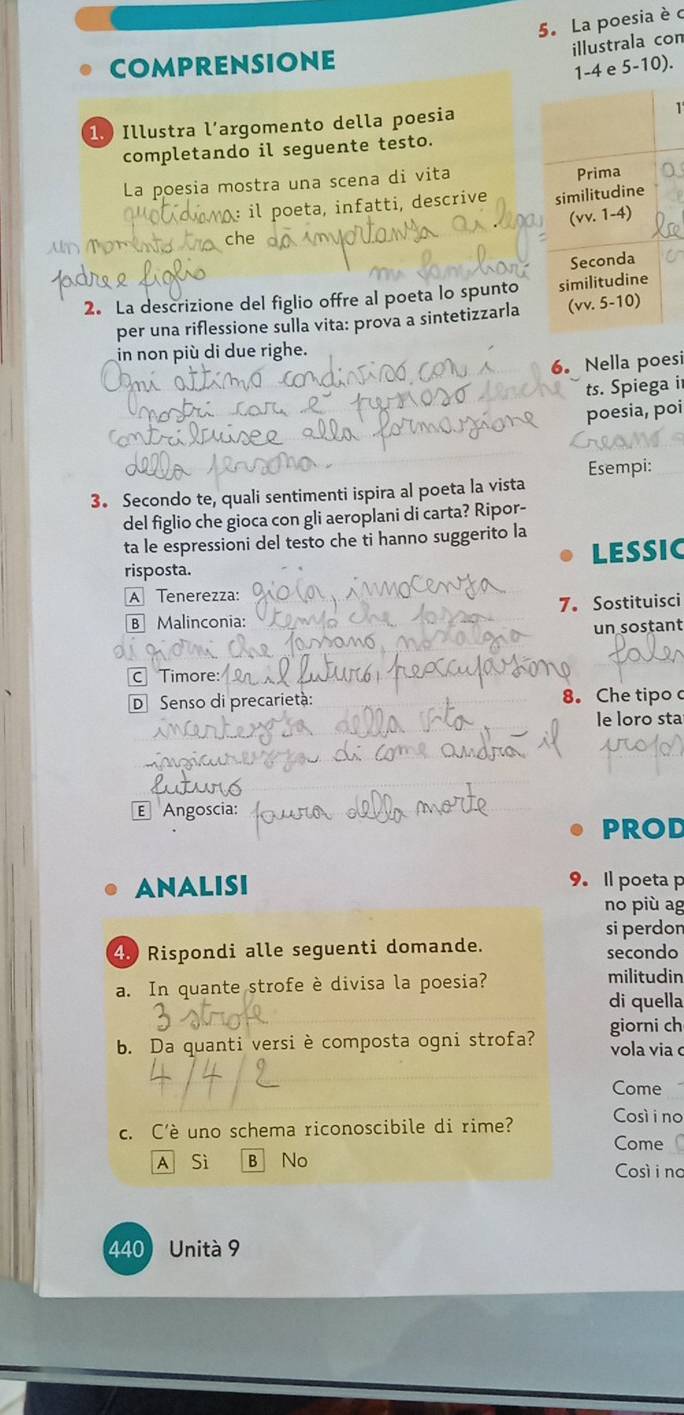 COMPRENSIONE
1. Illustra l'argomento della poesia
completando il seguente testo.
La poesia mostra una scena di vita
quotidiana: il poeta, infatti, descrive
un momento tra che dà importanza ai lega
padre e figlio mi familiari
2. La descrizione del figlio offre al poeta lo spunto
per una riflessione sulla vita: prova a sintetizzarla
in non più di due righe.
Ogni attimo condiviso con i
nostri cari è prezioso perche
contribuisce alla formazione
della persona.
3. Secondo te, quali sentimenti ispira al poeta la vista
del figlio che gioca con gli aeroplani di carta? Ripor-
ta le espressioni del testo che ti hanno suggerito la
risposta.
A Tenerezza: gioia, innocenza
B Malinconia: tempo che passa
di giorni che passano, nostalgia
C Timore: per il futuro, preoccupazione
D Senso di precarietà:
incertezza della vita,
insicurezza di come andrà il
futuro
E Angoscia: paura della morte
ANALISI
4. Rispondi alle seguenti domande.
a. In quante strofe è divisa la poesia?
3 strofe
b. Da quanti versi è composta ogni strofa?
4/4/2
c. C'è uno schema riconoscibile di rime?
A Sì B No
440 Unità 9
5. La poesia è c
illustrala con
1-4 e 5-10).
1
Prima
similitudine
(vv. 1-4)
Seconda
similitudine
(vv. 5-10)
6. Nella poesi
ts. Spiega i
poesia, poi
Creano
Esempi:
LESSIC
7. Sostituisci
un sostant
8. Che tipo c
le loro sta
PROD
9. Il poeta p
no più ag
si perdon
secondo
militudin
di quella
giorni ch
vola via c
Come
Così i no
Come
Così i no